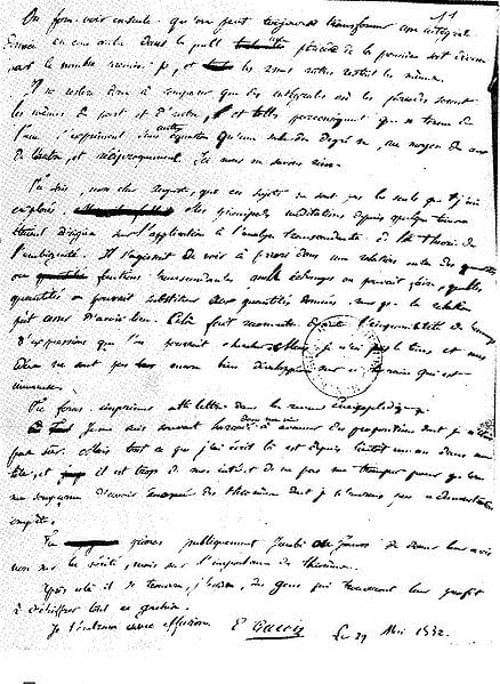 11
On fera voir ensuite qu'on peut toujours transformer une intégrale
donnée en une autre dans laquelle une période de la première soit divisée
par le nombre premier p, et les 2n-1 autres restent les mêmes.
Il ne restera donc à comparer que des intégrales où les périodes seront
les mêmes de part et d'autre, et telles par conséquent que n termes de
l'une s'expriment sans autre équation qu'une seule du degré n, au moyen de ceux
de l'autre, et réciproquement. Ici nous ne savons rien.
Tu sais, mon cher Auguste, que ces sujets ne sont pas les seuls que j'aie
explorés. Mes principales méditations depuis quelque temps
étaient dirigées sur l'application à l'analyse transcendante de la théorie de
l'ambiguité. Il s'agissait de voir à priori dans une relation entre des quantités
ou fonctions transcendantes quels échanges on pouvait faire, quelles
quantités on pouvait substituer aux quantités données sans que la relation
put cesser d'avoir lieu. Cela fait reconnaitre l'impossibilité de beaucoup
d'expressions que l'on pourrait chercher. Mais je n'ai pas le temps et mes
idées ne sont pas encore bien développées sur ce terrain qui est
immense.
Tu feras imprimer cette lettre dans la revue encyclopédique.
Je me suis souvent hasardé dans ma vie à avancer des propositions dont je n'étais
pas sûr. Mais tout ce que j'ai écrit là est depuis bientôt un an dans ma
tête, et il est trop de mon intérêt de ne pas me tromper pour qu'on
me soupçonne d'avoir énoncé des théorèmes dont je n'aurais pas la démonstration
complète.
Tu prieras publiquement Jacobi ou Gauss de donner leur avis
non sur la vérité, mais sur l'importance des théorèmes.
Après cela il se trouvera, j'espère, des gens qui trouveront leur profit
à déchiffrer tout ce gachis.
Je t'embrasse avec effusion. E Galois Le 29 Mai 1832.